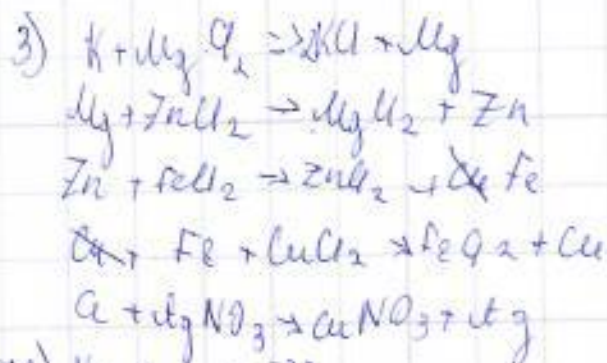 3) K + MgCl2 => 2KCl + Mg
Mg + ZnCl2 → MgCl2 + Zn
Zn + FeCl2 → ZnCl2 + Fe
Fe + CuCl2 → FeCl2 + Cu
Cu + AgNO3 → CuNO3 + Ag